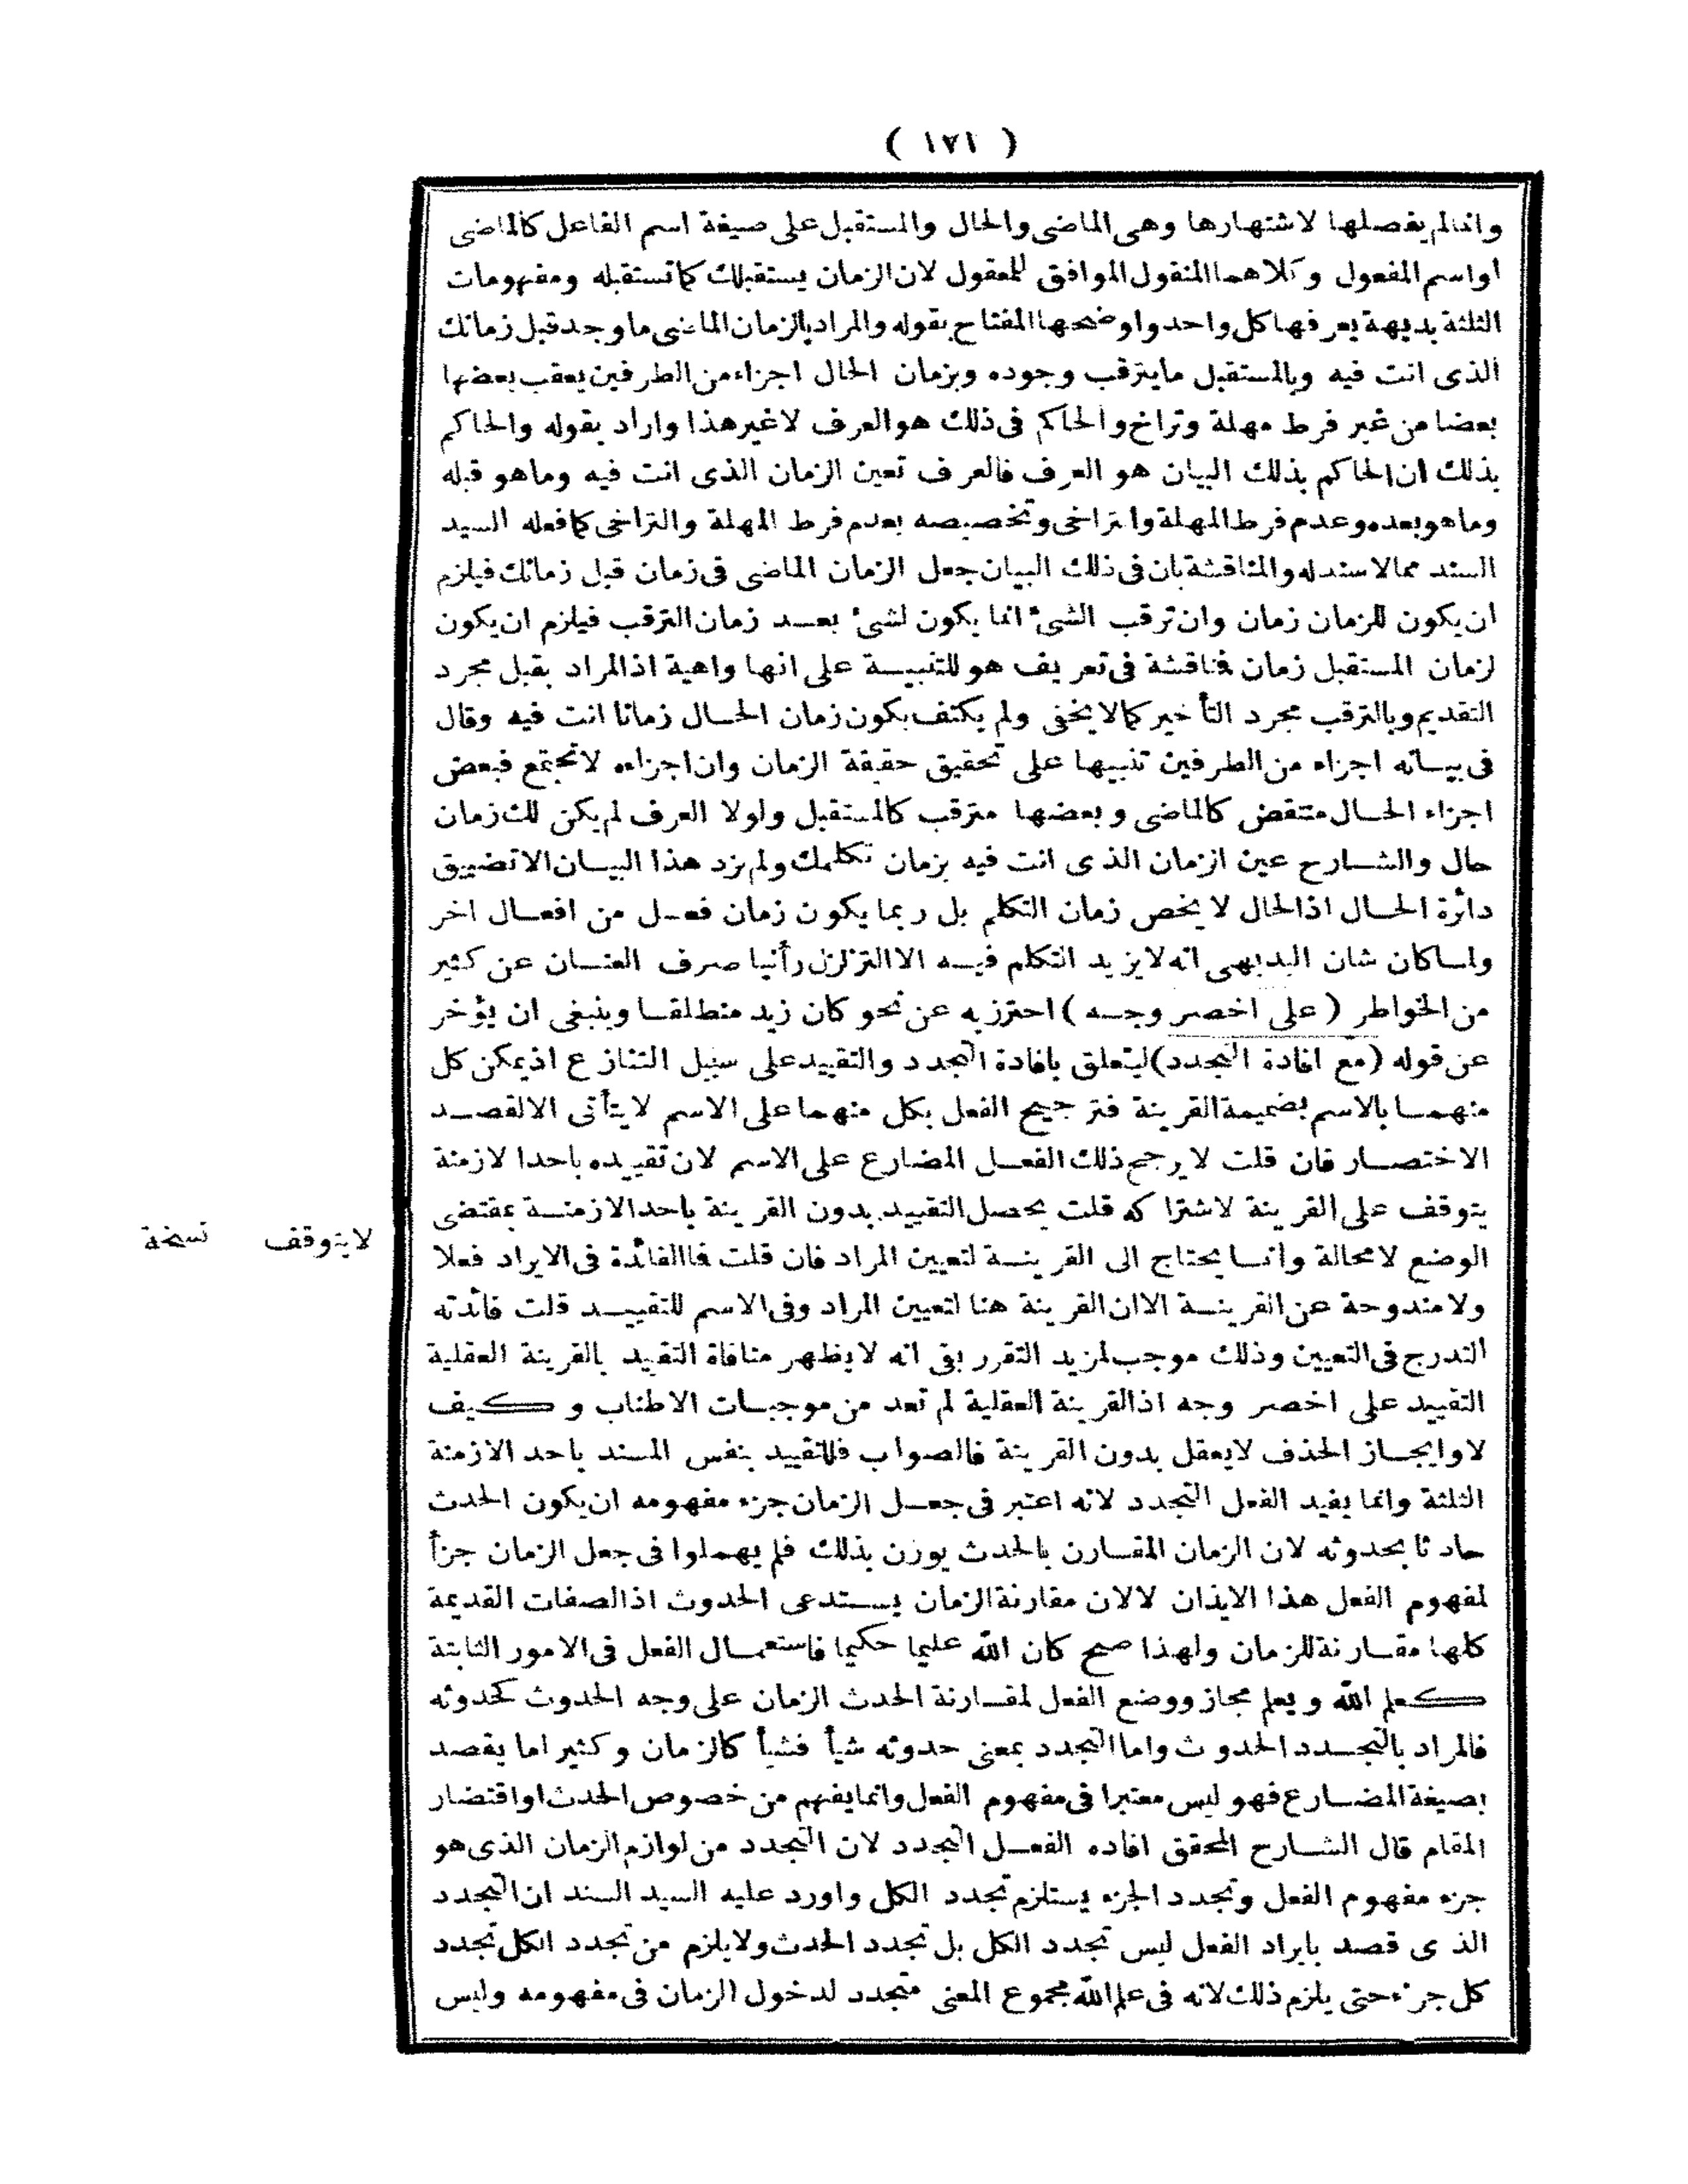 ( ١٧١ )
وانمالم يفصلها لاشتهارها وهى الماضى والحال والمستقبل على صيغة اسم الفاعل كالماضى
او اسم المفعول وكلاهما المنقول الموافق للمعقول لان الزمان يستقبلك كما تستقبله ومفهومات
الثلثة بديهة يعرفها كل واحد واوضحها المفتاح بقوله والمراد بالزمان الماضى ما وجد قبل زمانك
الذى انت فيه وبالمستقبل ما يترقب وجوده وبزمان الحال اجزاء من الطرفين يعقب بعضها
بعضا من غير فرط مهلة وتراخ والحاكم فى ذلك هو العرف لا غير هذا واراد بقوله والحاكم
بذلك ان الحاكم بذلك البيان هو العرف فالعرف تعين الزمان الذى انت فيه وما هو قبله
وما هو بعده وعدم فرط المهلة والتراخى وتخصيصه بعدم فرط المهلة والتراخى كما فعله السيد
السند مما لا سند له والمناقشة بان فى ذلك البيان جعل الزمان الماضى فى زمان قبل زمانك فيلزم
ان يكون للزمان زمان وان ترقب الشئ انما يكون لشئ بعد زمان الترقب فيلزم ان يكون
لزمان المستقبل زمان فمناقشة فى تعريف هو للتنبيه على انها واهية اذ المراد بقبل مجرد
التقديم وبالترقب مجرد التأخير كما لا يخفى ولم يكتف بكون زمان الحال زمانا انت فيه وقال
فى بيانه اجزاء من الطرفين تنبيها على تحقيق حقيقة الزمان وان اجزاءه لا تجتمع فبعض
اجزاء الحال منقض كالماضى وبعضها مترقب كالمستقبل ولولا العرف لم يكن لك زمان
حال والشارح عين ازمان الذى انت فيه بزمان تكلمك ولم يزد هذا البيان الا تضييق
دائرة الحال اذ الحال لا يخص زمان التكلم بل ربما يكون زمان فعل من افعال اخر
ولما كان شان البديهى انه لا يزيد التكلم فيه الا التزلزل رأنيا صرف العنان عن كثير
من الخواطر (على اخصر وجه) احترز به عن نحو كان زيد منطلقا وينبغى ان يؤخر
عن قوله (مع افادة التجدد) ليتعلق بافادة التجدد والتقييد على سبيل التنازع اذ يمكن كل
منهما بالاسم بضميمة القرينة فترجيح الفعل بكل منهما على الاسم لا يتأتى الا لقصد
الاختصار فان قلت لا يرجح ذلك الفعل المضارع على الاسم لان تقييده باحدا لازمنة
يتوقف على القرينة لاشتراكه قلت يحصل التقييد بدون القرينة باحد الازمنة بمقتضى
لا يتوقف نسخة
الوضع لا محالة وانما يحتاج الى القرينة لتعيين المراد فان قلت فما الفائدة فى الايراد فعلا
ولا مندوحة عن القرينة الا ان القرينة هنا لتعيين المراد وفى الاسم للتقييد قلت فائدته
التدرج فى التعيين وذلك موجب لمزيد التقرر بقى انه لا يظهر منافاة التقييد بالقرينة العقلية
التقييد على اخصر وجه اذ القرينة العقلية لم تعد من موجبات الاطناب وكيف
لا وايجاز الحذف لا يعقل بدون القرينة فالصواب فللتقييد بنفس المسند باحد الازمنة
الثلثة وانما يفيد الفعل التجدد لانه اعتبر فى جعل الزمان جزء مفهومه ان يكون الحدث
حادثا بحدوثه لان الزمان المقارن بالحدث يوزن بذلك فلم يهملوا فى جعل الزمان جزأ
لمفهوم الفعل هذا الايذان لا لان مقارنة الزمان يستدعى الحدوث اذ الصفات القديمة
كلها مقارنة للزمان ولهذا صح كان الله عليما حكيما فاستعمال الفعل فى الامور الثابتة
كعلم الله ويعلم مجاز ووضع الفعل لمقارنة الحدث الزمان على وجه الحدوث كحدوثه
فالمراد بالتجدد الحدوث واما التجدد بمعنى حدوثه شيأ فشيأ كالزمان وكثير اما يقصد
بصيغة المضارع فهو ليس معتبرا فى مفهوم الفعل وانما يفهم من خصوص الحدث او اقتضار
المقام قال الشارح المحقق افاده الفعل التجدد لان التجدد من لوازم الزمان الذى هو
جزء مفهوم الفعل وتجدد الجزء يستلزم تجدد الكل واورد عليه السيد السند ان التجدد
الذى قصد بايراد الفعل ليس تجدد الكل بل تجدد الحدث ولا يلزم من تجدد الكل تجدد
كل جزء حتى يلزم ذلك لانه فى علم الله مجموع المعنى متجدد لدخول الزمان فى مفهومه وليس